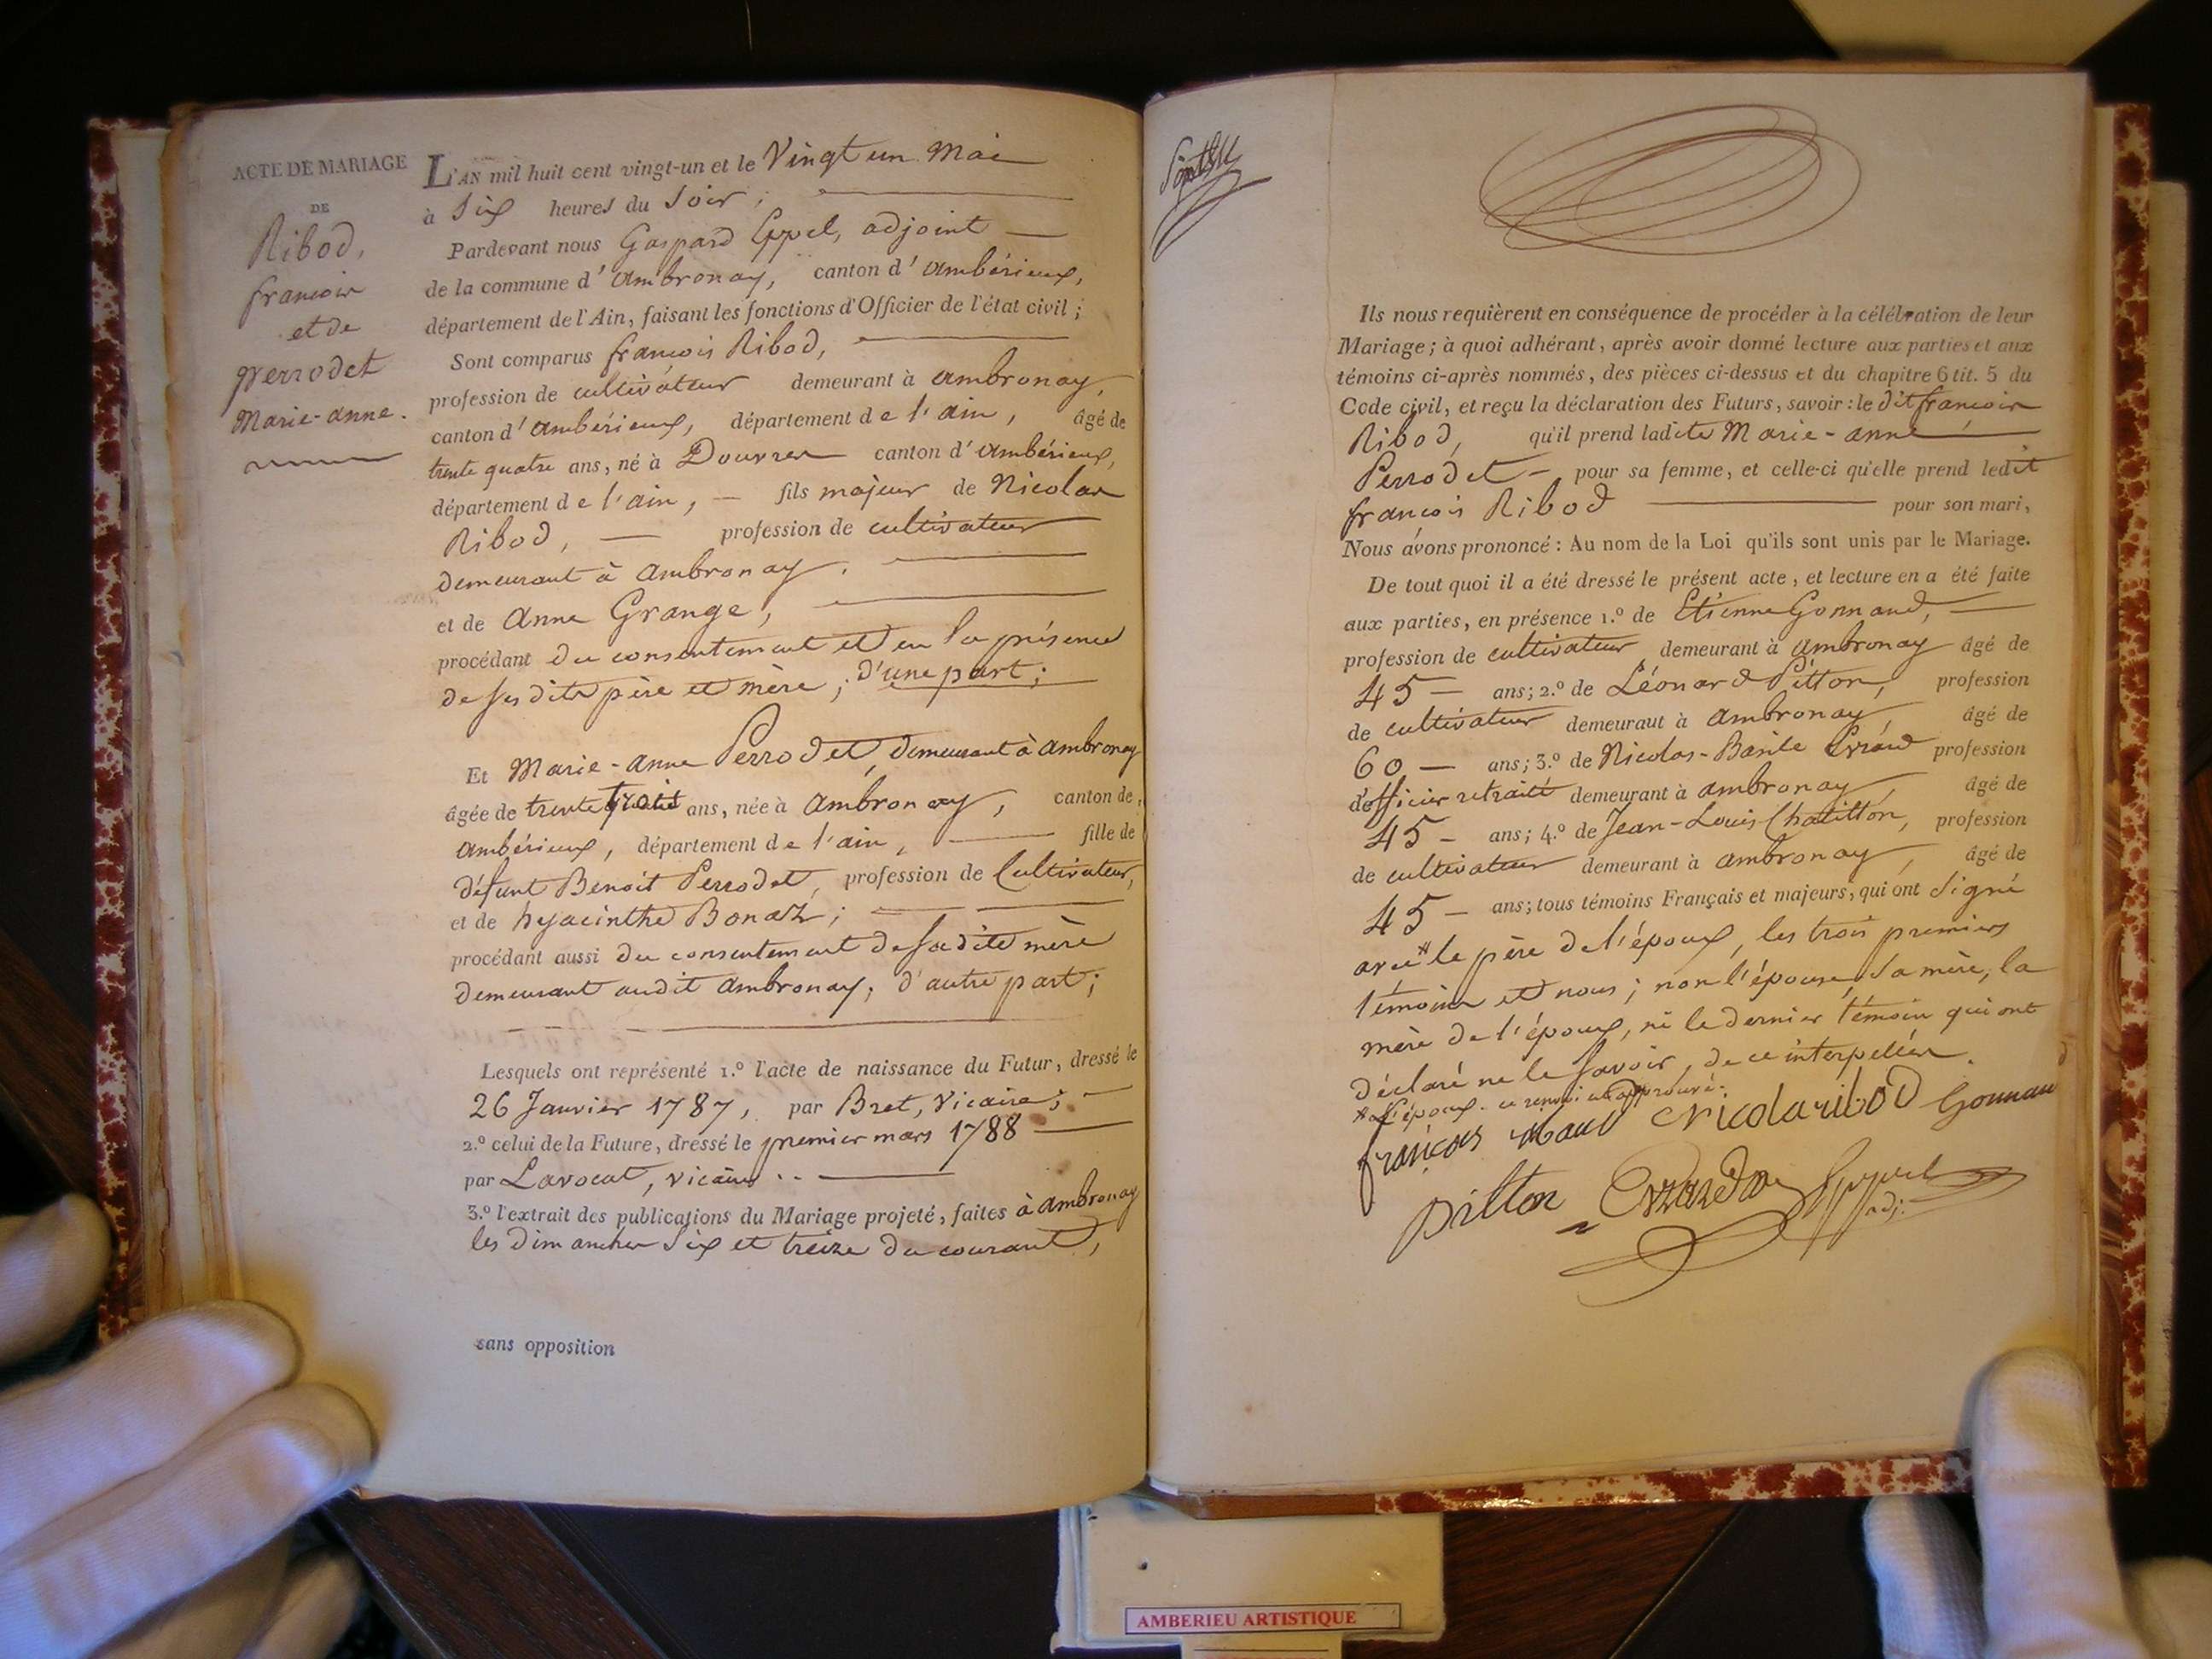 ACTE DE MARIAGE
DE
Ribod,
françois
et de
perrodet
Marie-anne.
L'AN mil huit cent vingt-un et le Vingt un Mai
à Six heures du Soir ;
Pardevant nous Gaspard Eppel, adjoint
de la commune d' ambronay, canton d' ambérieux,
département de l'Ain, faisant les fonctions d'Officier de l'état civil ;
Sont comparus françois Ribod,
profession de cultivateur demeurant à ambronay,
canton d' ambérieux, département de l'ain, âgé de
trente quatre ans, né à Douvres canton d' ambérieux,
département de l'ain, fils majeur de Nicolas
Ribod, profession de cultivateur
demeurant à ambronay.
et de anne Grange,
procédant du consentement et en la présence
de ses dits père et mère ; d'une part ;
Et Marie-anne Perrodet, demeurant à ambronay
âgée de trente trois ans, née à ambronay, canton de
ambérieux, département de l'ain, fille de
défunt Benoit Perrodet, profession de Cultivateur,
et de hyacinthe Bonaz ;
procédant aussi du consentement de sa dite mère
demeurant audit ambronay ; d'autre part ;
Lesquels ont représenté 1.º l'acte de naissance du Futur, dressé le
26 Janvier 1787, par Bret, Vicaire ;
2.º celui de la Future, dressé le premier mars 1788
par Lavocat, vicaire
3.º l'extrait des publications du Mariage projeté, faites à ambronay
les dimanches Six et treize du courant,
sans opposition
Ils nous requièrent en conséquence de procéder à la célébration de leur
Mariage ; à quoi adhérant, après avoir donné lecture aux parties et aux
témoins ci-après nommés, des pièces ci-dessus et du chapitre 6 tit. 5 du
Code civil, et reçu la déclaration des Futurs, savoir : le dit françois
Ribod, qu'il prend ladite Marie-anne
Perrodet pour sa femme, et celle-ci qu'elle prend ledit
françois Ribod pour son mari,
Nous avons prononcé : Au nom de la Loi qu'ils sont unis par le Mariage.
De tout quoi il a été dressé le présent acte, et lecture en a été faite
aux parties, en présence 1.º de Etienne Gonnand,
profession de cultivateur demeurant à ambronay âgé de
45 ans ; 2.º de Léonard Pitton, profession
de cultivateur demeuraut à ambronay, âgé de
60 ans ; 3.º de Nicolas-Basile Evrard profession
d'officier retraité demeurant à ambronay, âgé de
45 ans ; 4.º de Jean-Louis Chatillon, profession
de cultivateur demeurant à ambronay, âgé de
45 ans ; tous témoins Français et majeurs, qui ont Signé
avec * le père de l'époux, les trois premiers
témoins et nous ; non l'épouse, Sa mère, la
mère de l'époux, ni le dernier témoin qui ont
déclaré ne le Savoir, de ce interpellés.
* l'époux. ce renvoi approuvé.
françois Nicola ribod Gonnan
pitton Eppel
adj.
AMBERIEU ARTISTIQUE